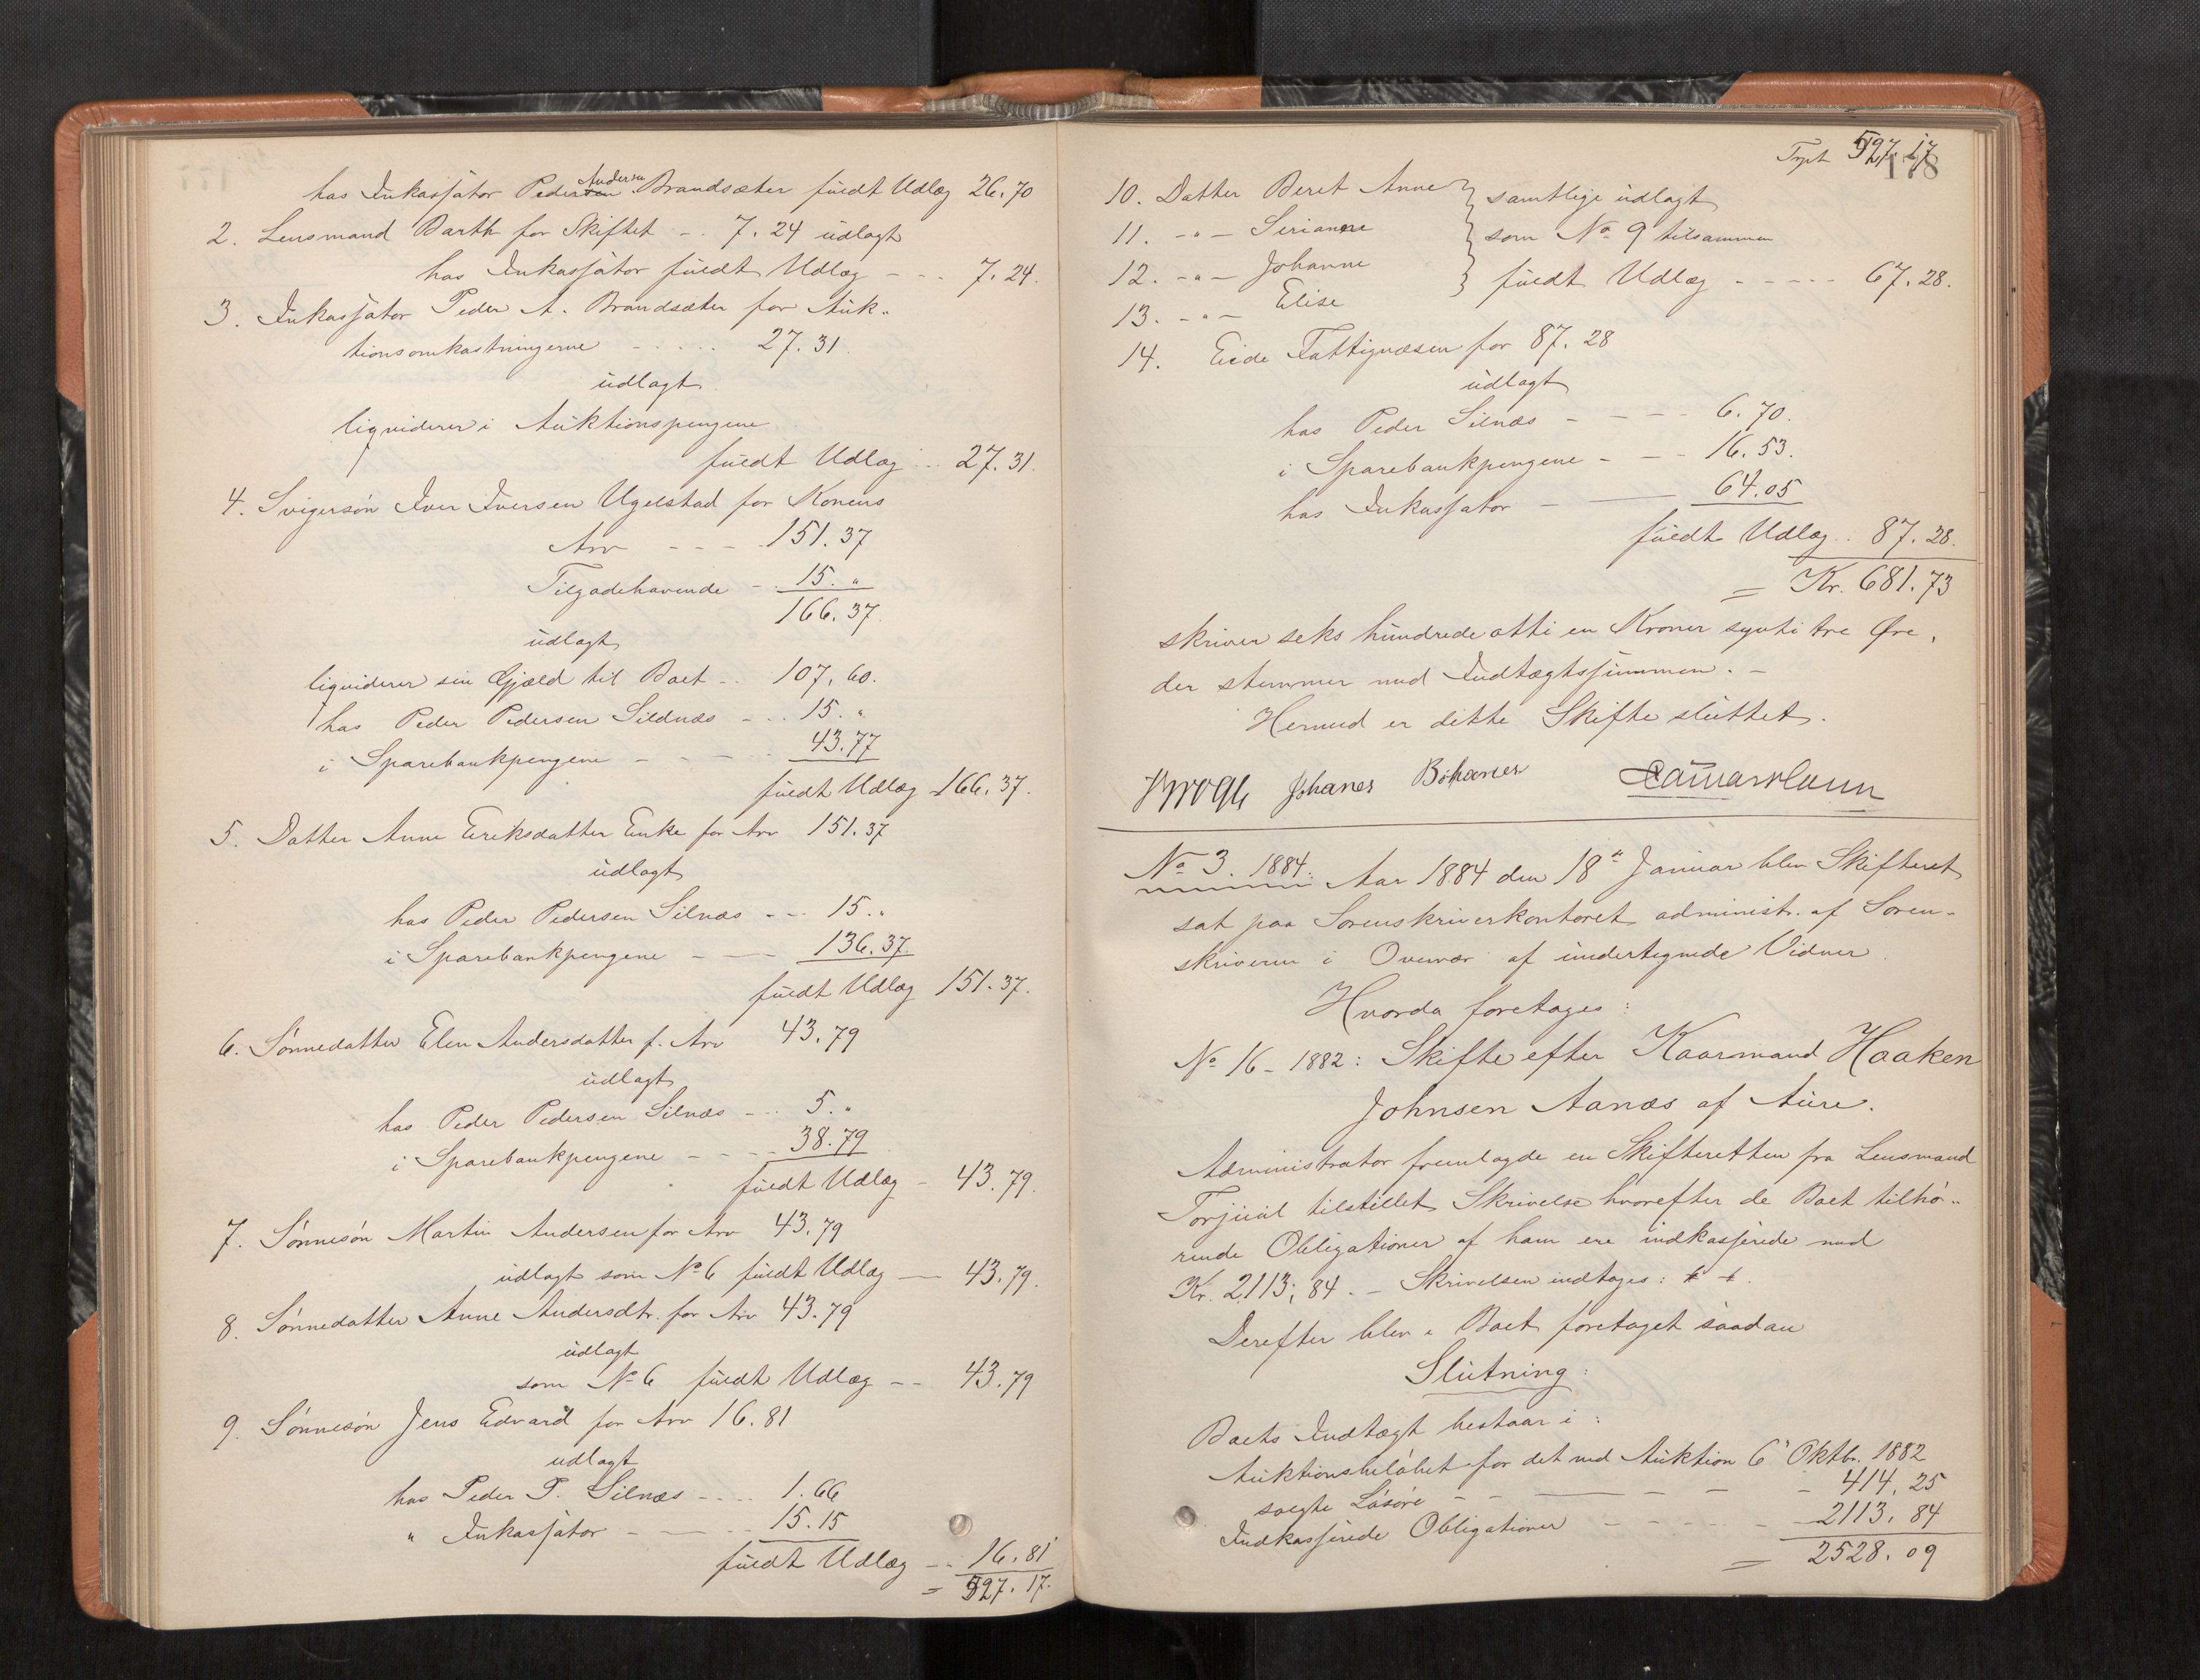 hos Inkassator Peder Andersen Brandsæter fuldt Udlæg 26.70
2. Lensmand Barth for Skiftet - . 7.24 udlagt
hos Inkassator fuldt Udlæg - - . 7.24.
3. Inkassator Peder A. Brandsæter for Auk-
tionsomkostningerne - . . . . . 27.31
udlagt
liqviderer i Auktionspengene
fuldt Udlæg . . 27.31.
4. Svigersøn Iver Iversen Ugelstad for Konens
Arv - - - 151.37
Tilgodehavende - . 15. "
166.37.
udlagt
liqviderer sin Gjæld til Boet . . 107.60.
hos Peder Pedersen Sildnæs - . . 15. "
i Sparebankpengene - - - - - 43.77
fuldt Udlæg 166.37.
5. Datter Anne Eriksdatter Enke for Arv 151.37
udlagt
hos Peder Pedersen Silnæs - - . 15. "
i Sparebankpengene - - - 136.37.
fuldt Udlæg 151.37.
6. Sønnedatter Elen Andersdatter f. Arv 43.79
udlagt
hos Peder Pedersen Silnæs - - . 5. "
i Sparebankpengene - - - - 38.79
fuldt Udlæg - 43.79.
7. Sønnesøn Martin Andersen for Arv 43.79
udlagt som No 6 fuldt Udlæg - 43.79.
8. Sønnedatter Anne Andersdtr. for Arv 43.79
udlagt
som No 6 fuldt Udlæg - - 43.79
9. Sønnesøn Jens Edvard for Arv 16.81
udlagt
hos Peder P. Silnæs - . . . 1.66
" Inkassator - - - . . 15.15
fuldt Udlæg - . 16.81
= 527.17.
Trpt 527.17
178
10. Datter Beret Anne } samtlige udlagt
11. - " - Serianne } som No 9 tilsammen
12. - " - Johanne } fuldt Udlæg - - - - - 67.28.
13. - " - Elise
14. Eide Fattigvæsen for 87.28
udlagt
hos Peder Silnæs - - - - 6.70.
i Sparebankpengene - - - 16.53.
hos Inkassator - - 64.05
fuldt Udlæg . . 87.28.
= Kr. 681.73
skriver seks hundrede otti en Kroner sytti tre Øre,
der stemmer med Indtægtssummen. -
Hermed er dette Skifte sluttet.
Krogh Johanes Bøhanes
No 3. 1884: Aar 1884 den 18de Januar blev Skifteret
sat paa Sorenskriverkontoret administr. af Soren-
skriveren i Overvær af undertegnede Vidner.
Hvorda foretages:
No 16 - 1882: Skifte efter Kaarmand Haaken
Johnsen Aanæs af Aure.
Administrator fremlagde en Skifteretten fra Lensmand
Torjuul tilstillet Skrivelse hvorefter de Boet tilhø-
rende Obligationer af ham ere indkasserede med
Kr. 2113,84. - Skrivelsen indtages: ŧ ŧ.
Derefter blev i Boet foretaget saadan
Slutning:
Boets Indtægt bestaar i:
Auktionsbeløbet for det ved Auktion 6' Oktbr. 1882
solgte Løsøre - - - - - - 414,25
Indkasserede Obligationer - - - - - 2113.84
= 2528.09